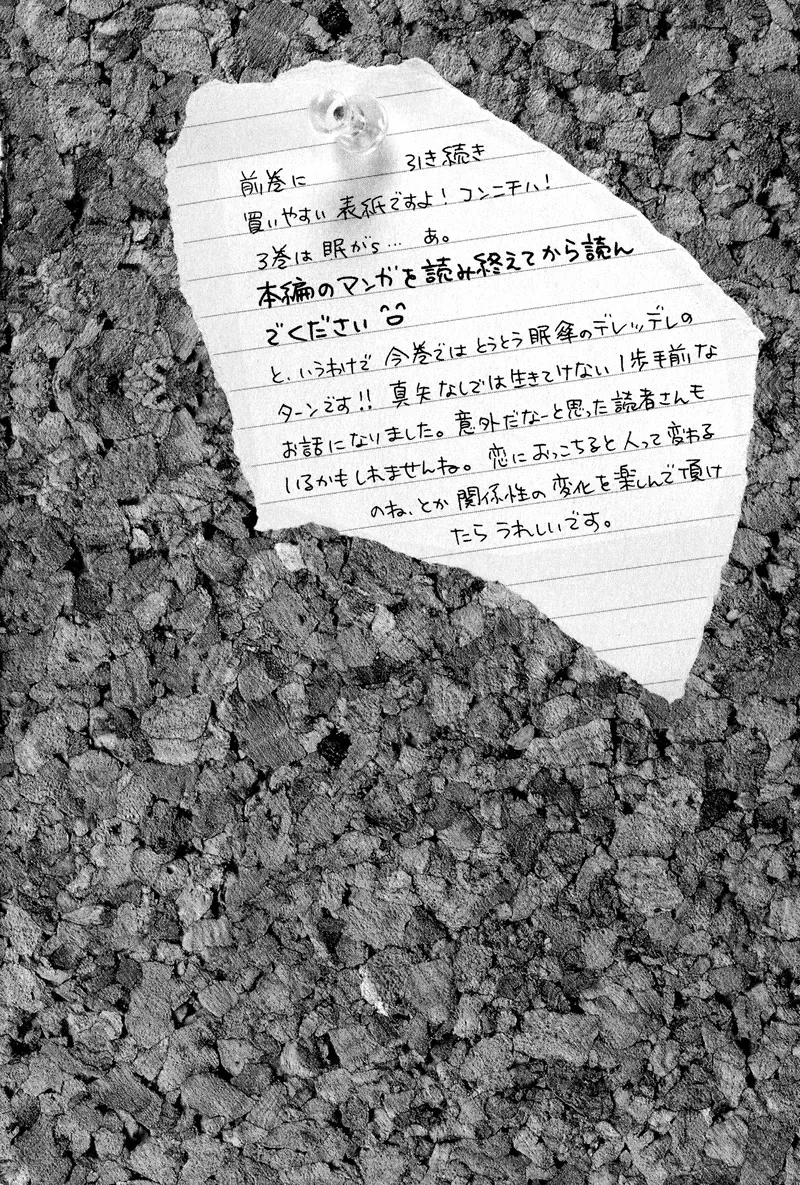 前巻に 引き続き
買いやすい 表紙ですよ！コンニチハ！
3巻は 眠がs… あ。
本編のマンガを読み終えてから読ん
でください
と、いうわけで 今巻では とうとう 眠傘のデレッデレの
ターンです!! 真矢なしでは生きてけない 1歩手前な
お話になりました。意外だなーと思った読者さんも
いるかもしれませんね。恋におっこちると人って変わる
のね、とか 関係性の 変化を楽しんで頂け
たら うれしいです。